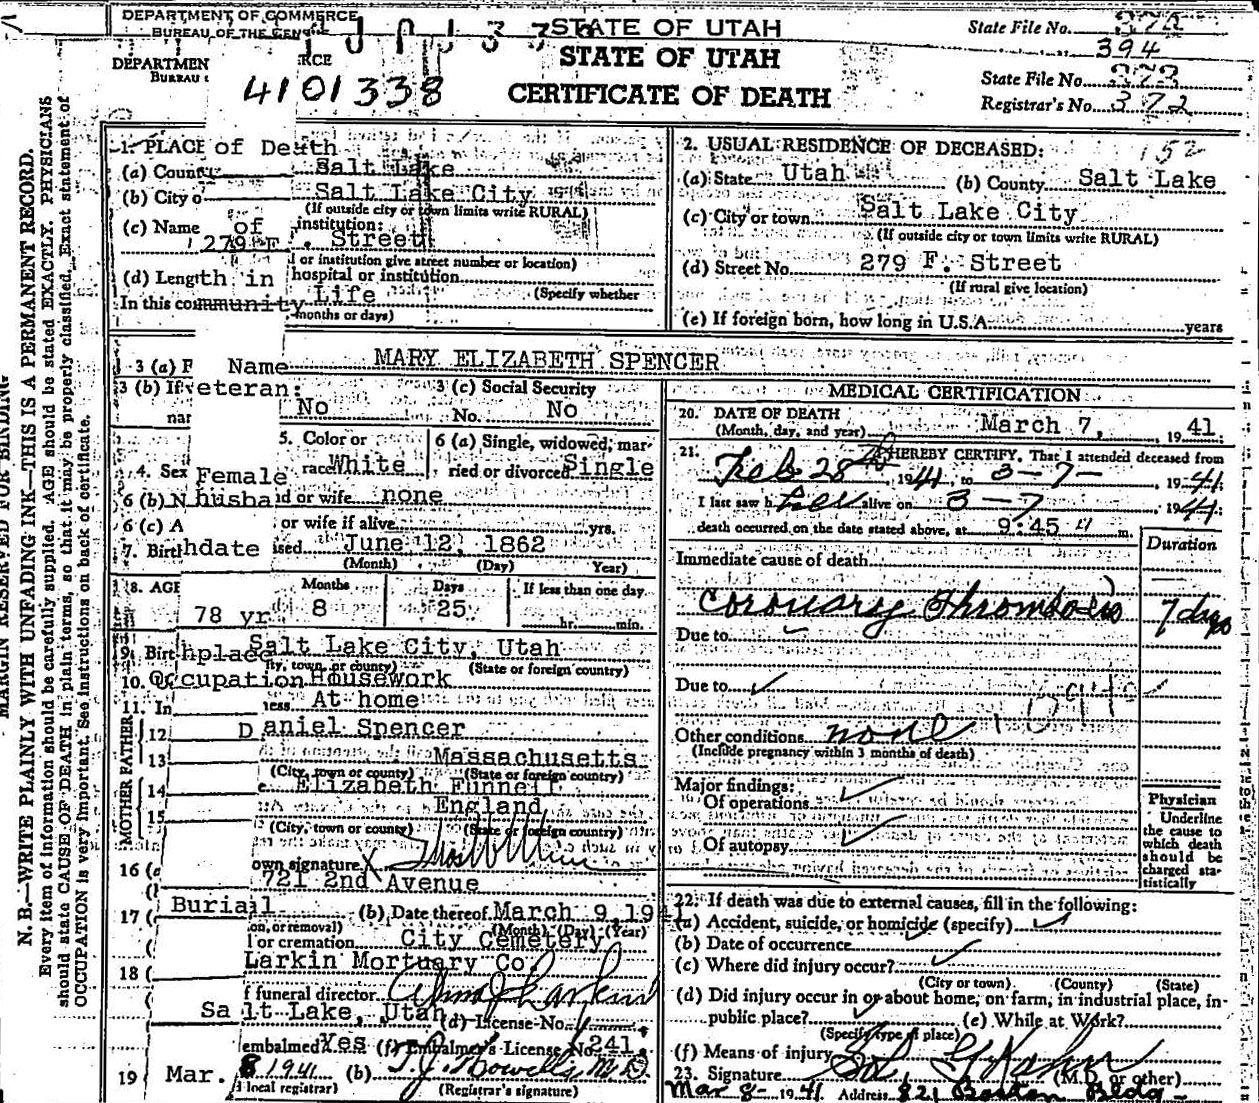 DEPARTMENT OF COMMERCE
BUREAU OF THE CENSUS
STATE OF UTAH
State File No. 372
394
DEPARTMEN RCE
BUREAU
4101338
STATE OF UTAH
CERTIFICATE OF DEATH
State File No. 373
Registrar's No. 372
MARGIN RESERVED FOR BINDING
N. B.—WRITE PLAINLY WITH UNFADING INK—THIS IS A PERMANENT RECORD.
Every item of information should be carefully supplied. AGE should be stated EXACTLY. PHYSICIANS
should state CAUSE OF DEATH in plain terms, so that it may be properly classified. Exact statement of
OCCUPATION is very important. See instructions on back of certificate.
1. PLACE of Death
(a) County Salt Lake
(b) City o Salt Lake City
(If outside city or town limits write RURAL)
(c) Name of institution:
279 F. Street
l or institution give street number or location)
(d) Length in hospital or institution
(Specify whether
In this community Life
months or days)
2. USUAL RESIDENCE OF DECEASED: 152
(a) State Utah (b) County Salt Lake
(c) City or town Salt Lake City
(If outside city or town limits write RURAL)
(d) Street No. 279 F. Street
(If rural give location)
(e) If foreign born, how long in U.S.A. years
3 (a) F Name MARY ELIZABETH SPENCER
3 (b) If veteran: 3 (c) Social Security
nam No No. No
4. Sex Female 5. Color or race White 6 (a) Single, widowed, mar-
ried or divorced Single
6 (b) N husba d or wife none
6 (c) A or wife if alive yrs.
7. Birthdate ased June 12, 1862
(Month) (Day) Year)
8. AGE Months Days If less than one day
78 yr 8 25 hr. min.
9. Birthplace Salt Lake City, Utah
ity, town, or county) (State or foreign country)
10. Occupation Housework
11. In ness At home
MOTHER FATHER
12 Daniel Spencer
13 Massachusetts
(City, town or county) (State or foreign country)
14 Elizabeth Funnell
15 England
(City, town or county) (State or foreign country)
16 (a own signature X
721 2nd Avenue
17 ( Burial (b) Date thereof March 9, 1941
on, or removal) (Month) (Day) (Year)
l or cremation City Cemetery
18 ( Larkin Mortuary Co.
f funeral director
Salt Lake, Utah (d) License No.
embalmed Yes (f) Embalmer's License No. 241
19 Mar. 8 1941 (b) T. J. Howells, M.D.
local registrar) (Registrar's signature)
MEDICAL CERTIFICATION
20. DATE OF DEATH
(Month, day, and year) March 7, , 19 41
21. I HEREBY CERTIFY, That I attended deceased from
Feb 28 , 1941, to 3-7- , 1941
I last saw her alive on 3-7 , 1941;
death occurred on the date stated above, at 9:45 m.
Duration
Immediate cause of death
Coronary thrombosis 7 days
Due to
Due to
Other conditions none
(Include pregnancy within 3 months of death)
Major findings:
Of operations
Of autopsy
Physician
Underline
the cause to
which death
should be
charged sta-
tistically
22. If death was due to external causes, fill in the following:
(a) Accident, suicide, or homicide (specify)
(b) Date of occurrence
(c) Where did injury occur?
(City or town) (County) (State)
(d) Did injury occur in or about home, on farm, in industrial place, in
public place? (e) While at Work?
(Specify type of place)
(f) Means of injury
23. Signature (M.D. or other)
Mar 8- 1941 Address 821 Boston Bldg-